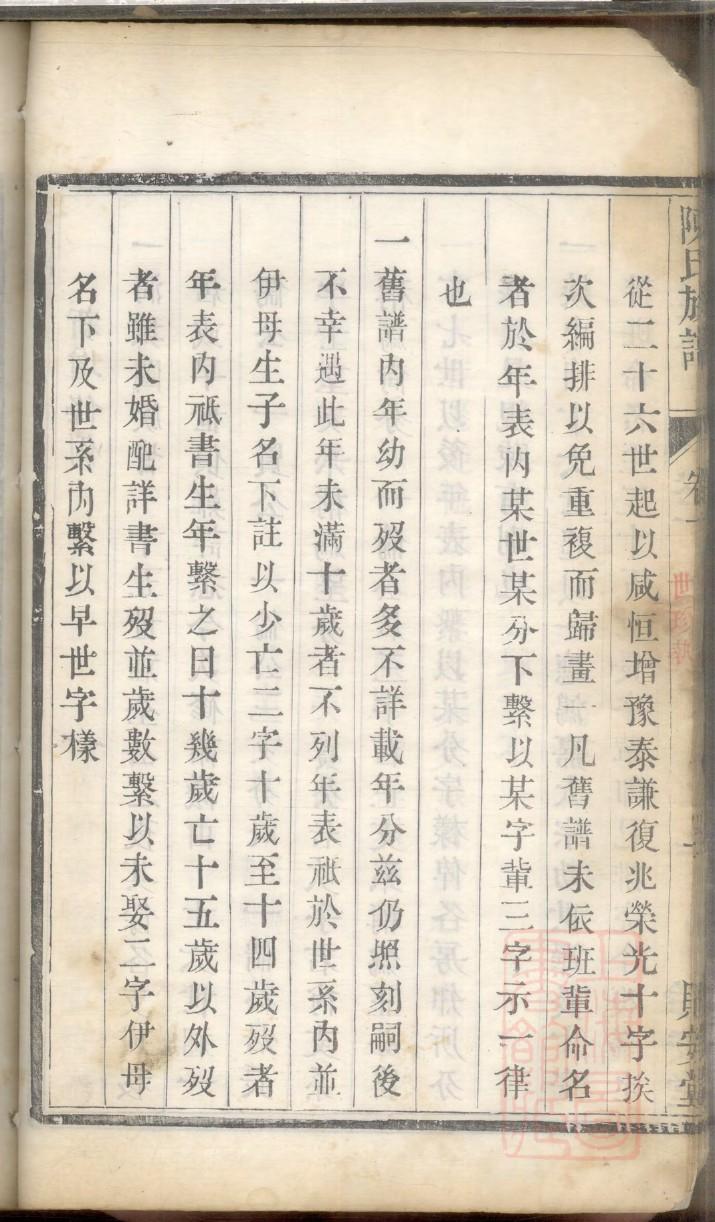 陳氏族譜
卷一
從二十六世起以咸恒增豫泰謙復兆榮光十字挨
次編排以免重複而歸畫一凡舊譜未依班輩命名
者於年表內某世某分下繫以某字輩三字示一律
也
一舊譜內年幼而歿者多不詳載年分兹仍照刻嗣後
不幸遇此年未滿十歲者不列年表祗於世系內並
伊母生子名下註以少亡二字十歲至十四歲歿者
年表內祗書生年繫之曰十幾歲亡十五歲以外歿
者雖未婚配詳書生歿並歲數繫以未娶二字伊母
名下及世系內繫以早世字樣